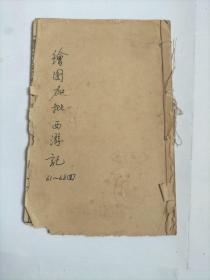 繪圖加批西游記
61~68回